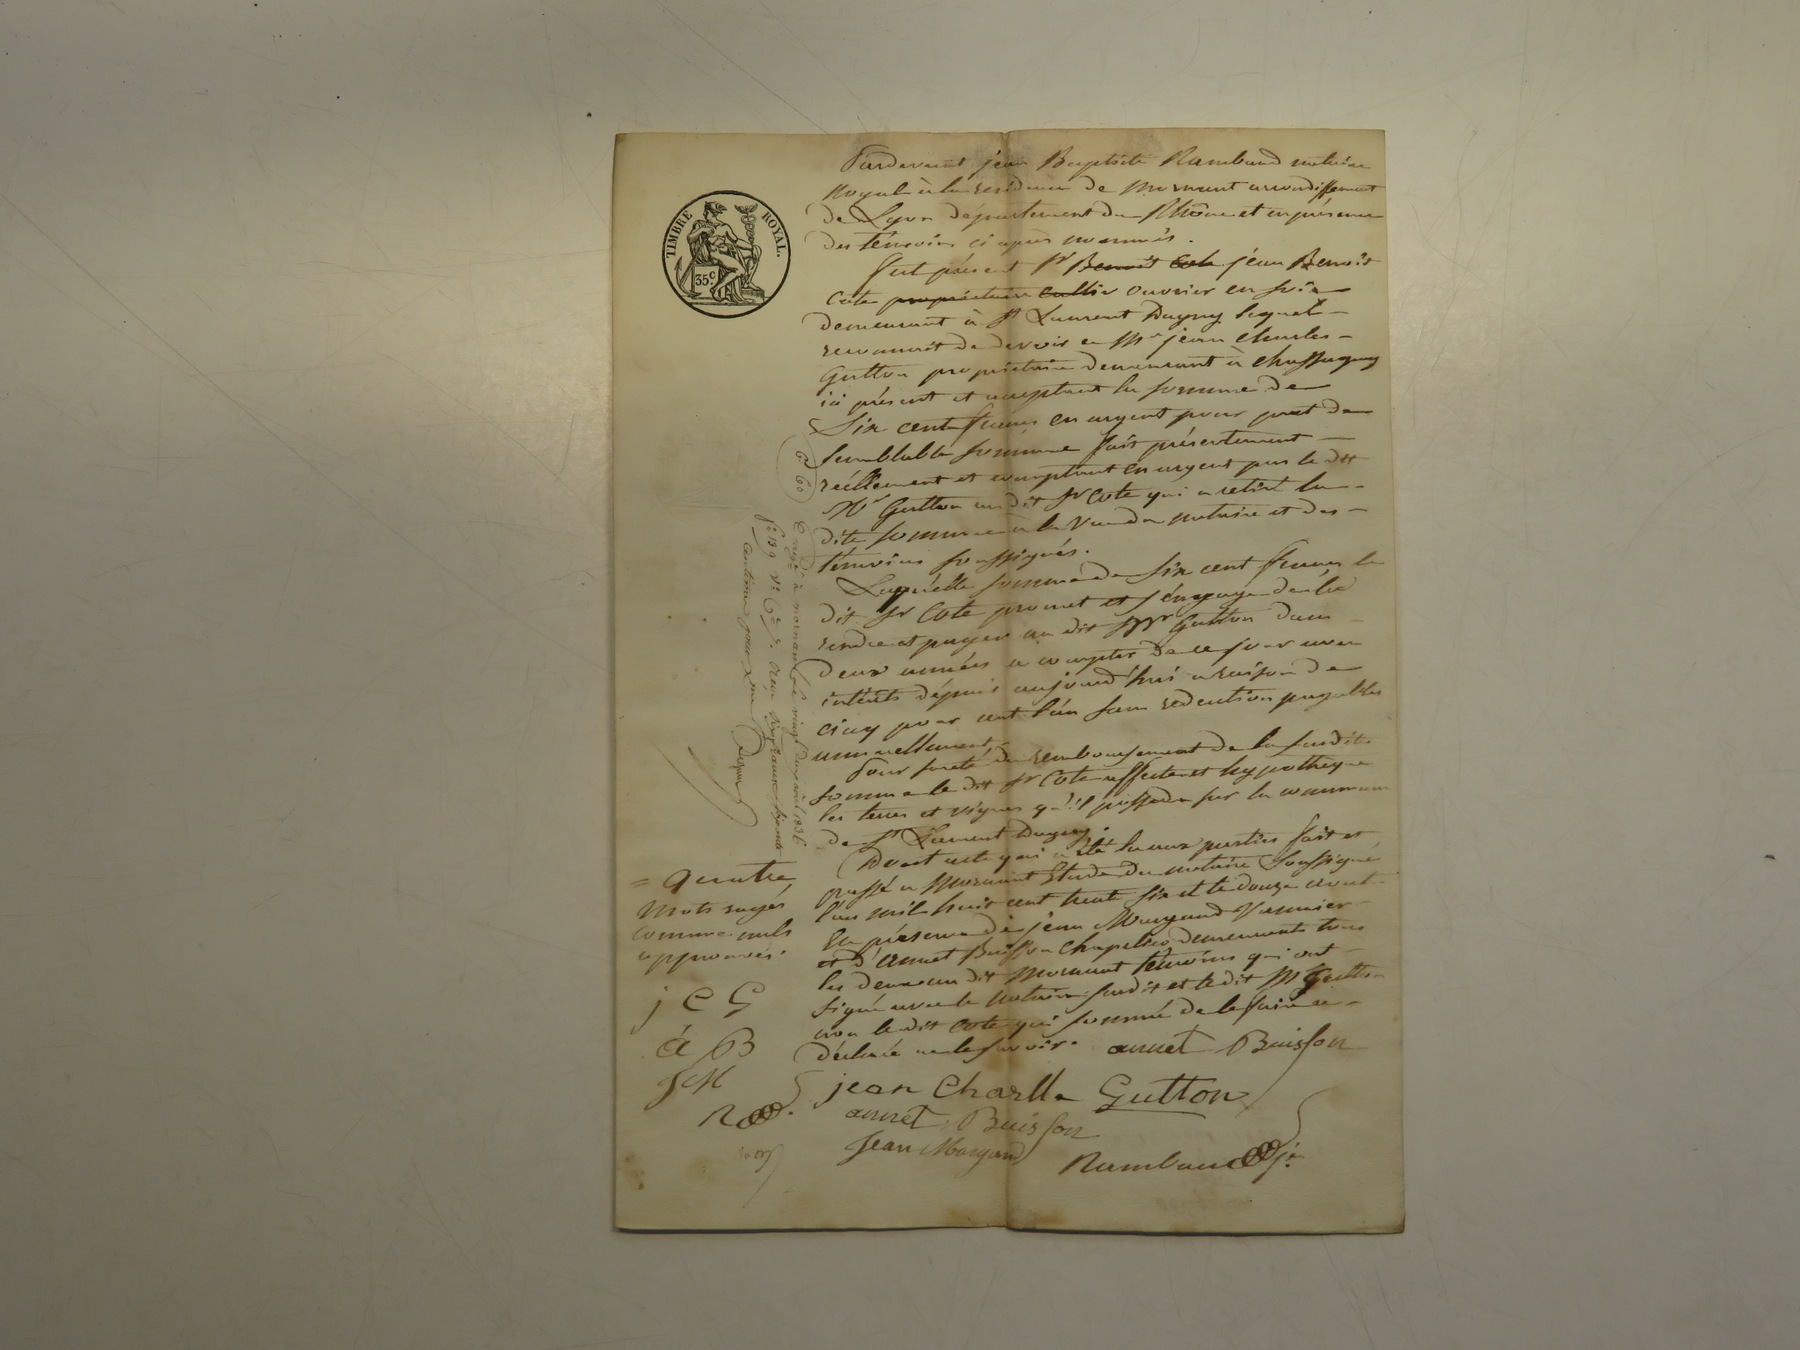 TIMBRE ROYAL.
35.c
Pardevant jean Baptiste Rambaud notaire
Royal à la residence de Mornant arrondissement
de Lyon département du Rhône et en présence
des témoins ci après nommés.
fut présent Sr Benoit Cote jean Benoit
Cote propriétaire cultiv ouvrier en soie
demeurant à St Laurent Dagny lequel
reconnoit de devoir a Mr jean Charles
Gutton propriétaire demeurant à Chassagny
ici présent et acceptant la somme de
Six cent francs en argent pour pret de
semblable somme fait présentement
réellement et comptant en argent par le dit
Mr Gutton au dit Sr Cote qui a retiré la
dite somme à la vue du notaire et des
témoins soussignés.
Laquelle somme de six cent francs le
dit Sr Cote promet et s'engage de lui
rendre et payer au dit Mr Gutton dans
deux années a compter de ce jour avec
intérêts dépuis aujourd'hui a raison de
cinq pour cent l'an sans rédaction payables
annuellement,
Pour sureté du remboursement de la susdite
somme le dit Sr Cote affecte et hypothèque
les terres et vignes qu'il possède sur la commune
de St Laurent Dagny.
Dont acte qui a été lu aux parties fait et
passé a Mornant Etude du notaire Soussigné
l'an mil huit cent trente six et le douze avout
En présence de jean Margand Vannier
et d'annet Buisson Chapelier demeurants tous
les deux au dit Mornant témoins qui ont
signé avec le notaire susdit et le dit Mr Gutton
non le dit Cote qui sommé de le faire a
déclaré ne le savoir. annet Buisson
jean Charlle Gutton
annet Buisson
Jean Margand
Rambaud jne
6. 60
Enregé à mornant le vingt deux août 1836
fo 139 Vo Cse 5. reçu six francs soixante
centimes pour Xme
= quatre
mots rayés
comme nuls
approuvés.
j C G
á B
J M
R